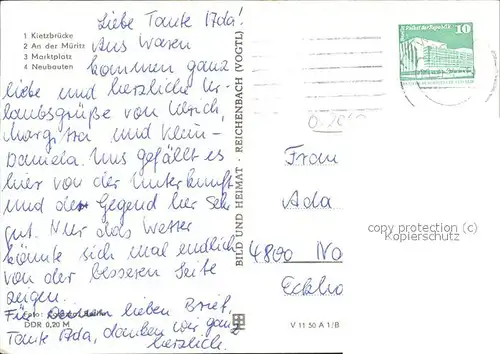 Liebe Tante Ada!
1 Kietzbrücke
2 An der Müritz
3 Marktplatz
4 Neubauten
Aus Waren
kommen ganz
liebe und herzliche Ur-
laubsgrüße von Ulrich,
Margitta und Klein-
Daniela. Uns gefällt es
hier von der Unterkunft
und der Gegend her sehr
gut. Nur das Wetter
könnte sich mal endlich
von der besseren Seite
zeigen.
Für lieben Brief,
Tante Ada, danken wir ganz
herzlich.
DDR 0,20 M
BILD UND HEIMAT · REICHENBACH (VOGTL)
V 11 50 A 1/B
Palast der Republik
10
Frau
Ada
4800
Eckha
copyright protection (c)
Kopierschutz